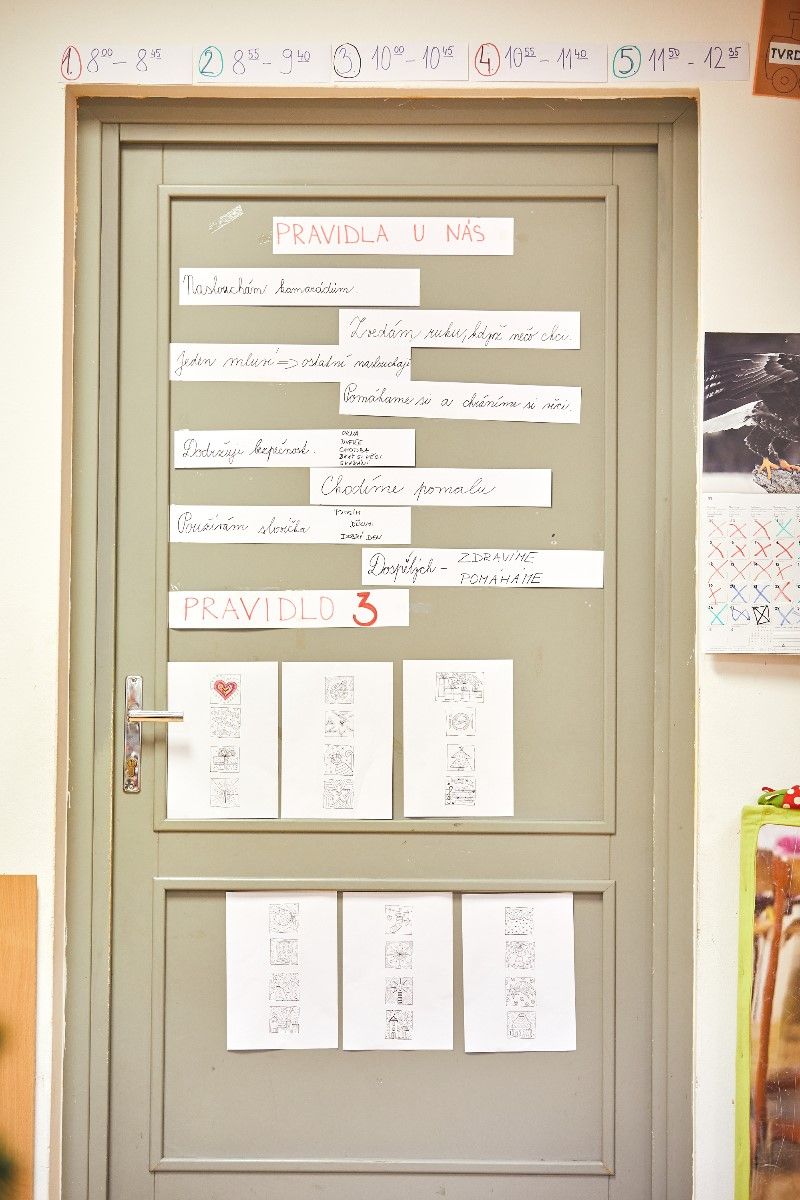 1 8⁰⁰ - 8⁴⁵ 2 8⁵⁵ - 9⁴⁰ 3 10⁰⁰ - 10⁴⁵ 4 10⁵⁵ - 11⁴⁰ 5 11⁵⁰ - 12³⁵
TVRD
PRAVIDLA U NÁS
Naslouchám kamarádům.
Zvedám ruku, když něco chci.
Jeden mluví => ostatní naslouchají
Pomáháme si a chráníme si věci.
Dodržuji bezpečnost.
OKNA
DVEŘE
CHODBA
BRÁT SI VĚCI
Chodíme pomalu
Používám slovíčka
PROSÍM
DĚKUJI
DOBRÝ DEN
Dospělých - ZDRAVÍME
POMÁHÁME
PRAVIDLO 3